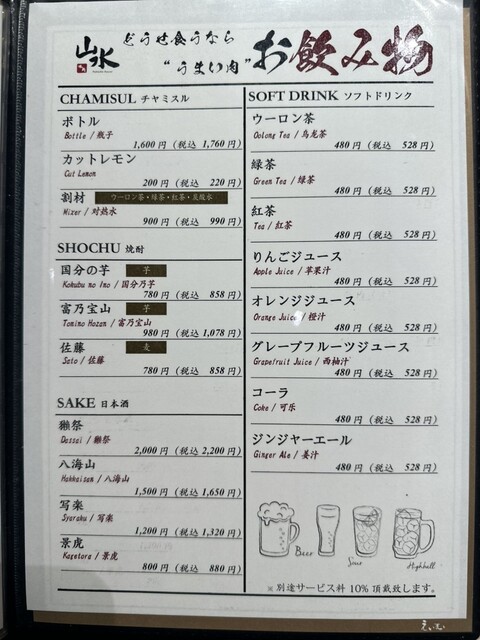 山水
どうせ食うなら
“うまい肉”
お飲み物
CHAMISUL チャミスル
ボトル
Bottle / 瓶子
1,600 円 (税込 1,760 円)
カットレモン
Cut Lemon
200 円 (税込 220 円)
割材 ウーロン茶・緑茶・紅茶・炭酸水
Mixer / 対熱水
900 円 (税込 990 円)
SHOCHU 焼酎
国分の芋 芋
Kokubu no Imo / 国分乃芋
780 円 (税込 858 円)
富乃宝山 芋
Tomino Hozan / 富乃宝山
980 円 (税込 1,078 円)
佐藤 麦
Sato / 佐藤
780 円 (税込 858 円)
SAKE 日本酒
獺祭
Dassai / 獺祭
2,000 円 (税込 2,200 円)
八海山
Hakkaisan / 八海山
1,500 円 (税込 1,650 円)
写楽
Syaraku / 写楽
1,200 円 (税込 1,320 円)
景虎
Kagetora / 景虎
800 円 (税込 880 円)
SOFT DRINK ソフトドリンク
ウーロン茶
Oolong Tea / 烏龙茶
480 円 (税込 528 円)
緑茶
Green Tea / 绿茶
480 円 (税込 528 円)
紅茶
Tea / 红茶
480 円 (税込 528 円)
りんごジュース
Apple Juice / 苹果汁
480 円 (税込 528 円)
オレンジジュース
Orange Juice / 橙汁
480 円 (税込 528 円)
グレープフルーツジュース
Grapefruit Juice / 西柚汁
480 円 (税込 528 円)
コーラ
Coke / 可乐
480 円 (税込 528 円)
ジンジャーエール
Ginger Ale / 姜汁
480 円 (税込 528 円)
Beer
Sour
Highball
※ 別途サービス料 10% 頂戴致します。